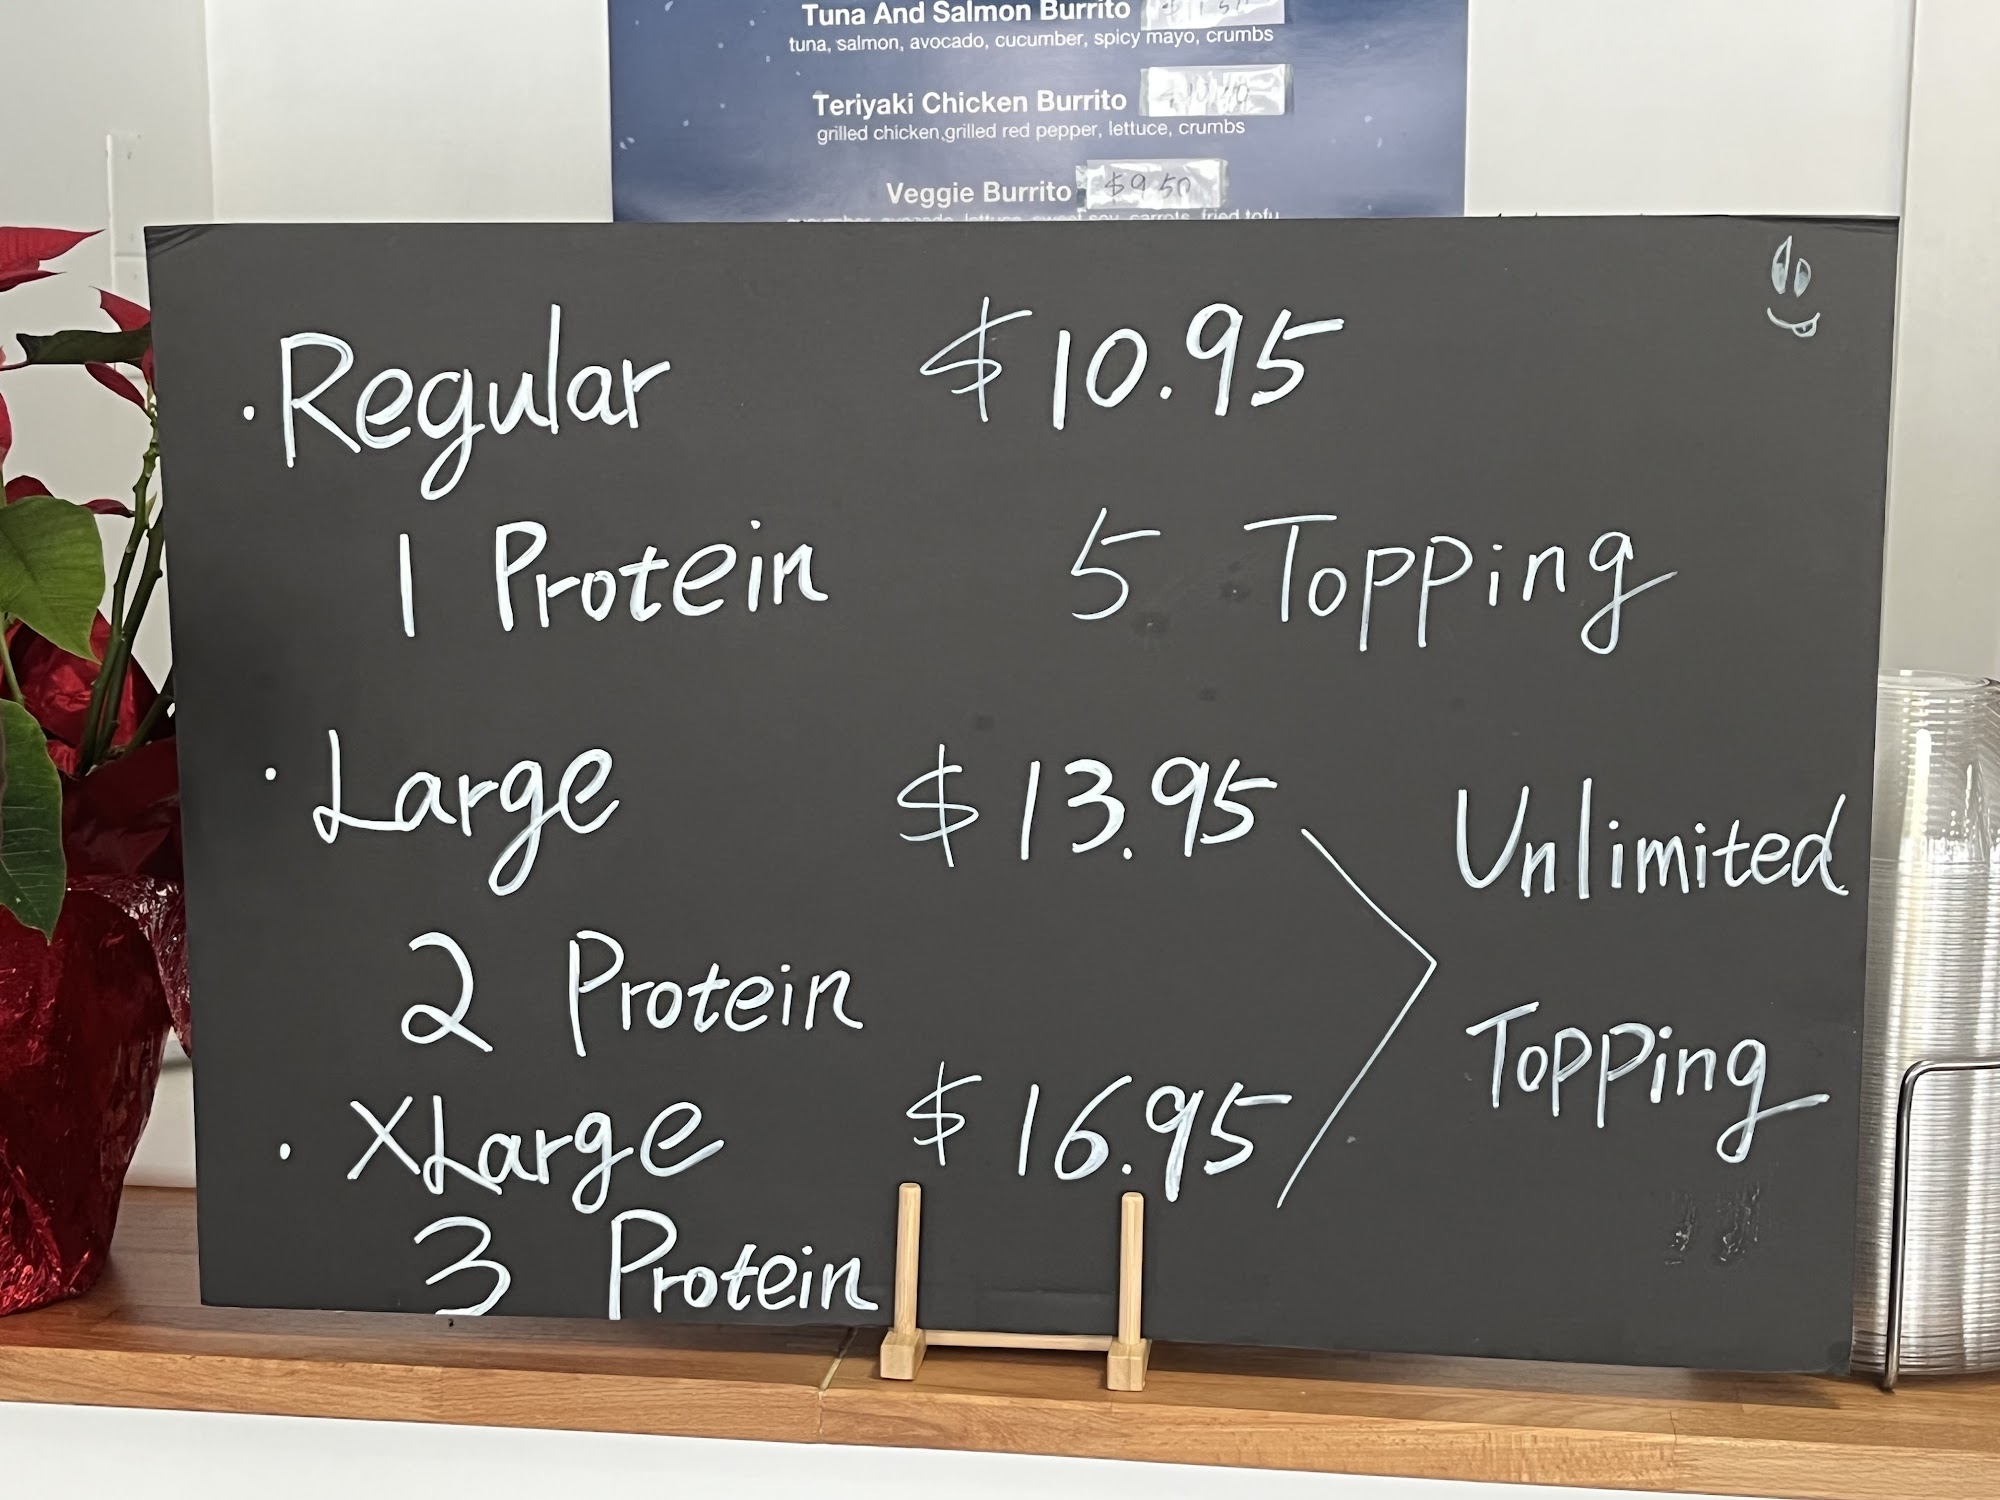 Tuna And Salmon Burrito
tuna, salmon, avocado, cucumber, spicy mayo, crumbs
Teriyaki Chicken Burrito
grilled chicken,grilled red pepper, lettuce, crumbs
Veggie Burrito $9.50
cucumber, avocado, lettuce, sweet soy, carrots, fried tofu
· Regular $10.95
1 Protein 5 Topping
· Large $13.95
Unlimited
2 Protein
Topping
· XLarge $16.95
3 Protein